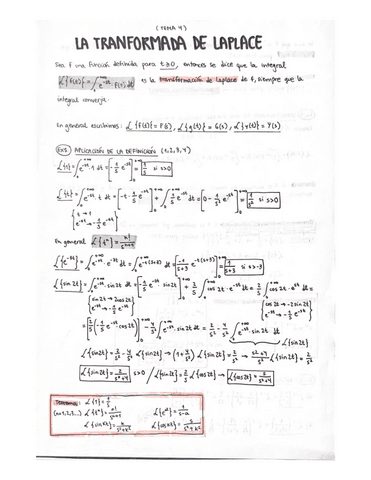 (TEMA 4)
LA TRANFORMADA DE LAPLACE
Sea f una función definida para t≥0, entonces se dice que la integral
ℒ{f(t)} = ∫₀^+∞ e^-st · f(t) dt es la transformación de laplace de f, siempre que la
integral converja.
En general escribimos: ℒ{f(t)} = F(s), ℒ{g(t)} = G(s), ℒ{y(t)} = Y(s)
APLICACIÓN DE LA DEFINICIÓN (1,2,3,4)
ℒ{1} = ∫₀^+∞ e^-st · 1 dt = [-1/s e^-st]₀^+∞ = 1/s si s>0
ℒ{t} = ∫₀^+∞ e^-st · t dt = [-t · 1/s e^-st]₀^+∞ + ∫₀^+∞ 1/s e^-st dt = [0 - 1/s² e^-st]₀^+∞ = 1/s² si s>0
{t → 1
e^-st → -1/s e^-st}
En general ℒ{tⁿ} = n!/s^n+1
ℒ{e^-3t} = ∫₀^+∞ e^-st · e^-3t dt = ∫₀^+∞ e^-t(s+3) dt = [-1/s+3 e^-t(s+3)]₀^+∞ = 1/s+3 si s>-3
ℒ{sin2t} = ∫₀^+∞ e^-st · sin2t dt = [-1/s e^-st · sin2t]₀^+∞ + 2/s ∫₀^+∞ cos2t · e^-st dt = 2/s ∫₀^+∞ cos2t · e^-st dt =
{sin2t → 2cos2t {cos2t → -2sin2t
e^-st → -1/s e^-st} e^-st → -1/s e^-st}
= [2/s (-1/s e^-st · cos2t)]₀^+∞ - 4/s² ∫₀^+∞ e^-st · sin2t dt = 2/s² - 4/s² ∫₀^+∞ e^-st · sin2t dt
ℒ{sin2t}
ℒ{sin2t} = 2/s² - 4/s² ℒ{sin2t} → (1+4/s²) ℒ{sin2t} = 2/s² → s²+4/s² ℒ{sin2t} = 2/s²
ℒ{sin2t} = 2/s²+4 s>0 / ℒ{sin2t} = 2/s ℒ{cos2t} → ℒ{cos2t} = s/s²+4
ℒ{1} = 1/s
(n=1,2,3...) ℒ{tⁿ} = n!/s^n+1 ℒ{e^at} = 1/s-a
ℒ{sinkt} = k/s²+k² ℒ{coskt} = s/s²+k²